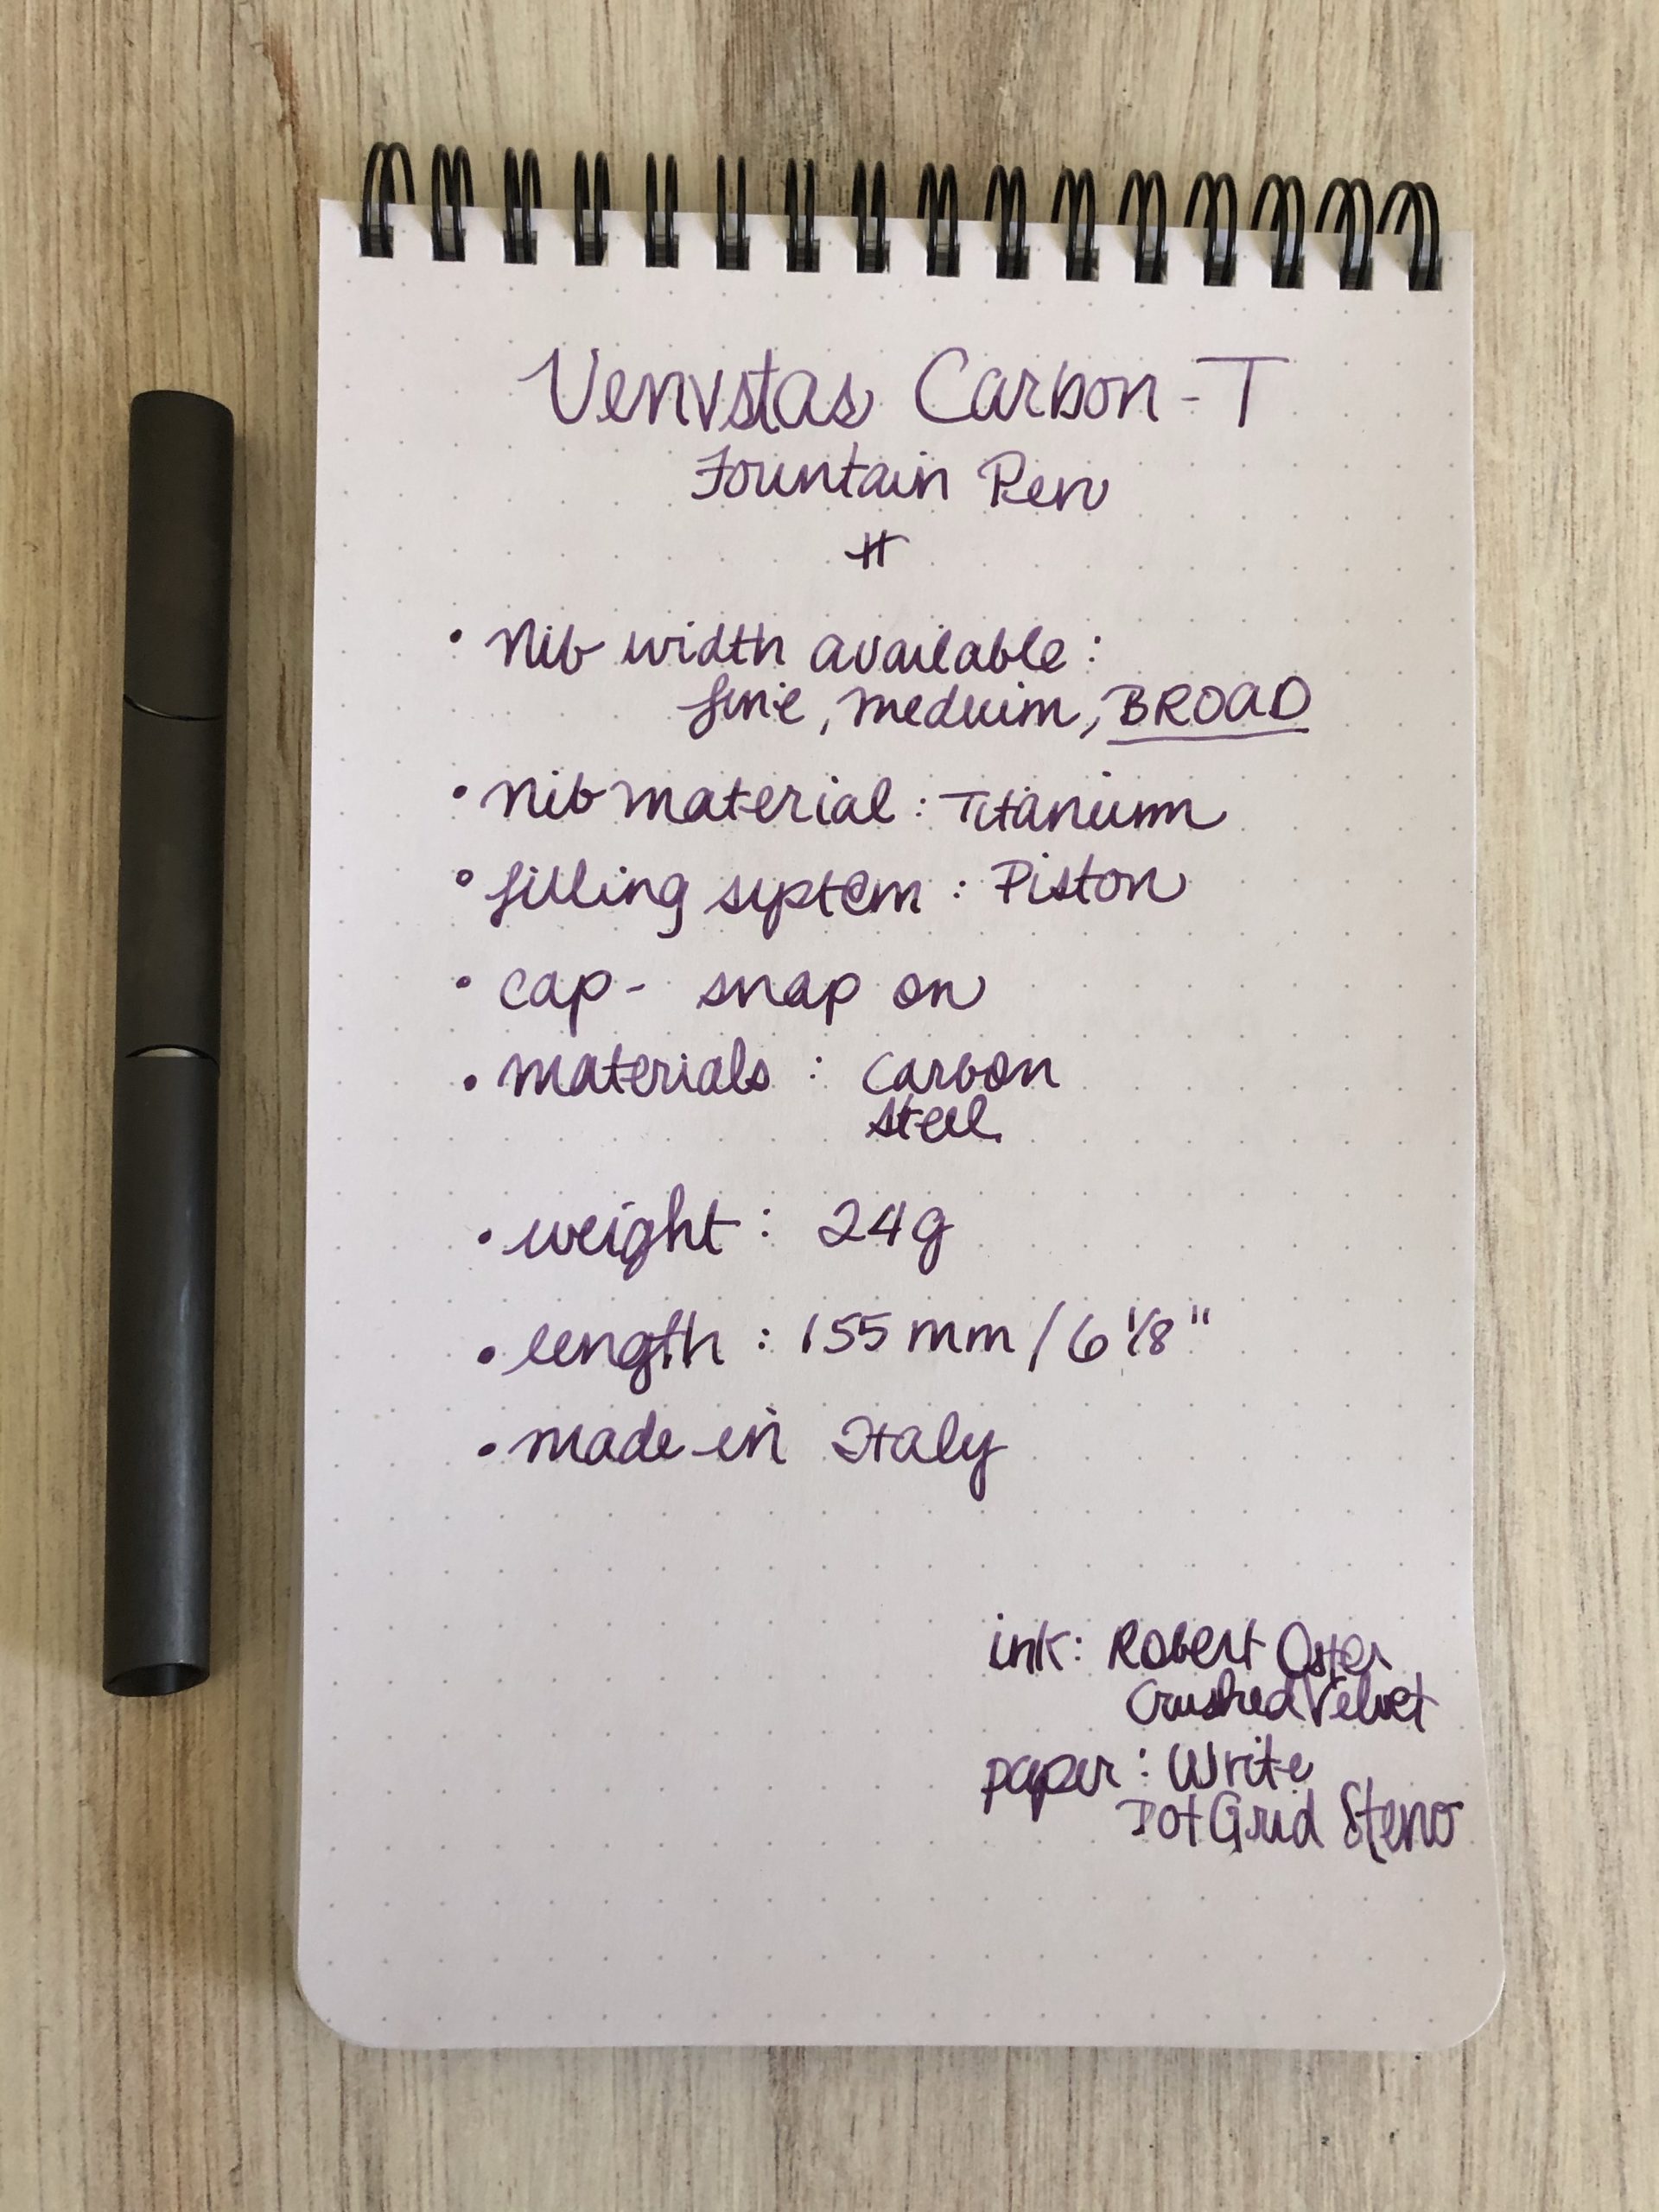 Venvstas Carbon-T
Fountain Pen
• Nib width available:
fine, medium, BROAD
• Nib material: Titanium
• filling system: Piston
• cap- snap on
• materials: carbon
steel
• weight: 24g
• length: 155mm/6 1/8"
• made in Italy
ink: Robert Oster
Crushed Velvet
paper: Write
Dot Grid Steno